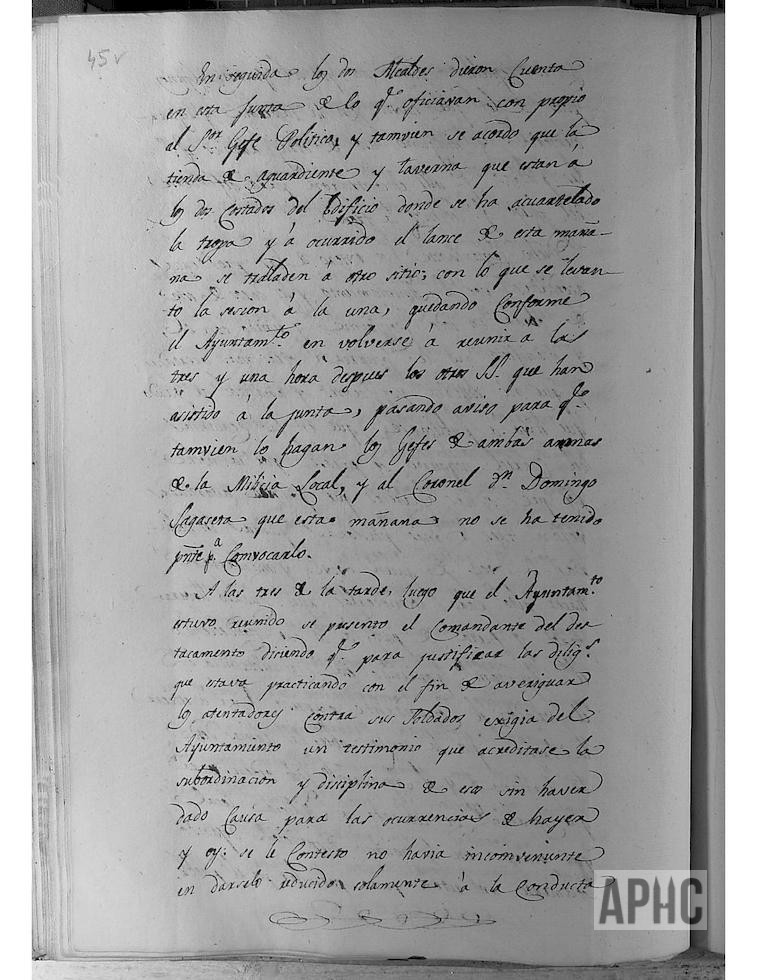 45v
En seguida los dos Alcaldes dieron Cuenta
en esta Junta de lo q.e oficiavan con propio
al S.or Gefe Politico, y tamvien se acordo que la
tienda de aguardiente y taverna que estan á
los dos Costados del Edificio donde se ha acuartelado
la tropa y á ocurrido el lance de esta maña-
na se trasladen á otro sitio; con lo que se levan-
to la sesion á la una, quedando Conforme
el Ayuntam.to en volverse á reunir a las
tres y una hora despues los otros SS. que han
asistido á la Junta, pasando aviso para q.e
tamvien lo hagan los Gefes de ambas armas
de la Milicia Local, y al Coronel d.n Domingo
Sagaseta que esta mañana no se ha tenido
pnte p.a Comvocarlo.
A las tres de la tarde, luego que el Ayuntam.to
estuvo reunido se presento el Comandante del des
tacamento diciendo q.e para justificar las dilig.s
que estava practicando con el fin de averiguar
los atentadores contra sus Soldados exigia del
Ayuntamiento un testimonio que acreditase la
subordinacion y disciplina de esos sin haver
dado Causa para las ocurrencias de hayer
y oy: se le Contesto no havia incomveniente
en darselo reducido solamente á la Conducta
APHC